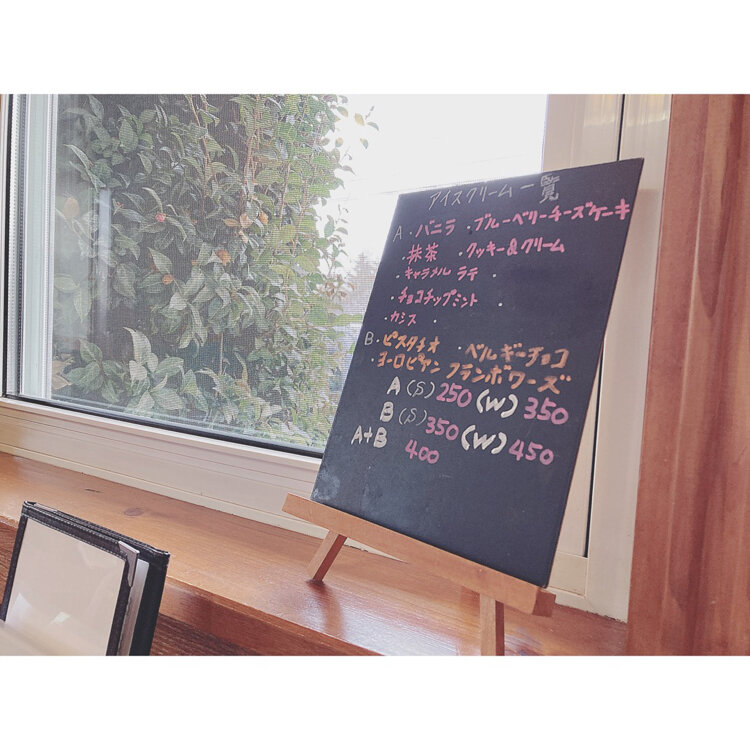 アイスクリーム一覧
A ・バニラ ・ブルーベリーチーズケーキ
・抹茶 ・クッキー&クリーム
・キャラメル ラテ ・
・チョコチップミント ・
・カシス ・
B ・ピスタチオ ・ベルギーチョコ
・ヨーロピアン フランボワーズ
A (S) 250 (W) 350
B (S) 350 (W) 450
A+B 400